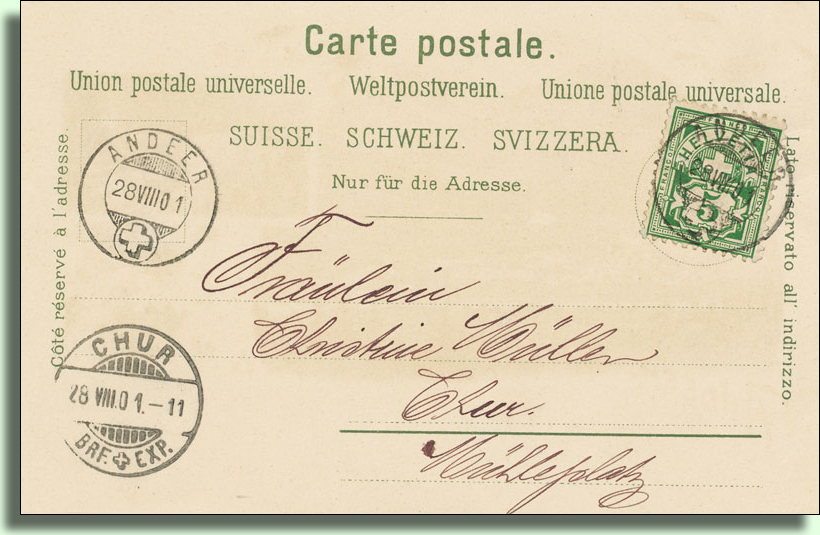 Carte postale.
Union postale universelle. Weltpostverein. Unione postale universale.
SUISSE. SCHWEIZ. SVIZZERA.
Nur für die Adresse.
Côté réservé à l'adresse.
Lato riservato all' indirizzo.
ANDEER
28 VIII 01
HELVETIA
5
CHUR
28 VIII.01.-11
BRF. EXP.
Fräulein
Christine Müller
Chur.
Mühleplatz